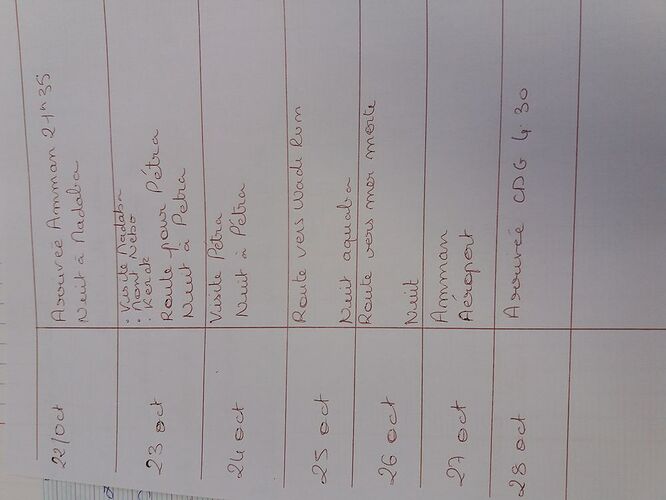 22/oct
Arrivée Amman 21h35
Nuit à Madaba
23 oct
. Visite Madaba
. Mont Nebo
. Kerak
Route pour Pétra
Nuit à Petra
24 oct
Visite Pétra
Nuit à Pétra
25 oct
Route vers Wade Rum
Nuit aquaba
26 oct
Route vers mer morte
Nuit
27 oct
Amman
Aéroport
28 oct
Arrivée CDG 4:30